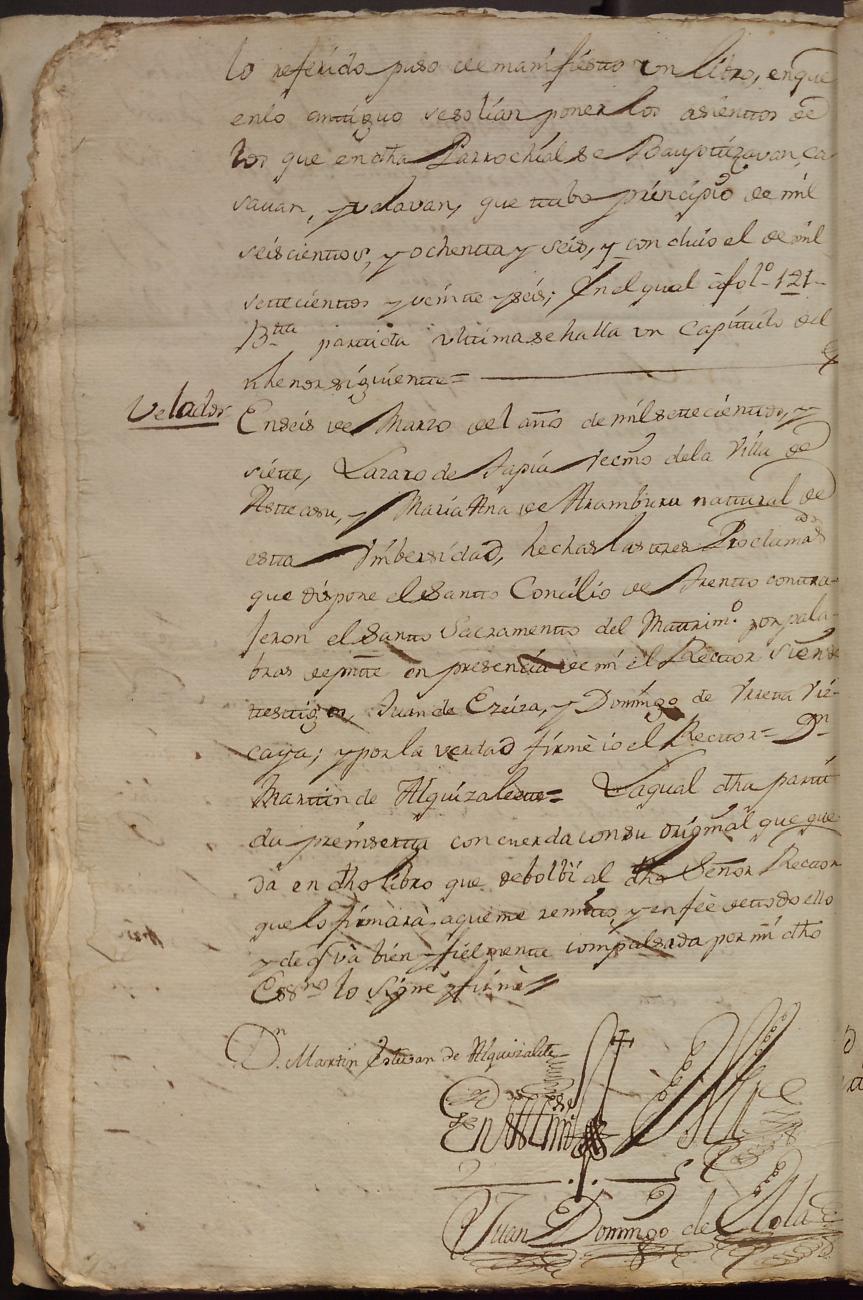 lo referido puso de manifiesto un libro, en que
en lo antiguo se solian poner los asientos de
los que en dha Parrochial se Baupttizavan, ca
savan, y velavan, que ttubo prinçipio de mil
seiscienttos, y ochentta y seis, y concluio el de mil
settecienttos y veintte y seis; En el qual â fol.º 121
B.tta parttida ulttima se halla un Capittulo del
thenor siguientte=
Velados
En seis de Marzo del año de mil settecienttos, y
siette, Lazaro de Tapia vecino de la Villa de
Astteasu, y Maria Ana de Aramburu nattural de
estta Unibersidad, hechas las tres Proclamas
que dispone el Santto Concilio de Trentto conttra-
jeron el Santto Sacramentto del Mattrim.º por pala-
bras de pntte en presencia de mi el Rector siendo
ttesttigos, Juan de Ezeiza, y Domingo de Urreta Viz-
caya; y por la verdad firmè io el Rector= Dn
Marttin de Alquizalette= La qual dha partti
da preinsertta concuerda con su original que que
da en dho libro que debolbi al dho Señor Rector
que lo firmarà, a que me remitto, y en feè de ttodo ello
y de q va bien y fielmentte compulsada por mi dho
Essno lo signè y firmè=
Dn. Martin Estevan de Alquizalette
En testimº de Vd
Juan Domingo de Olola